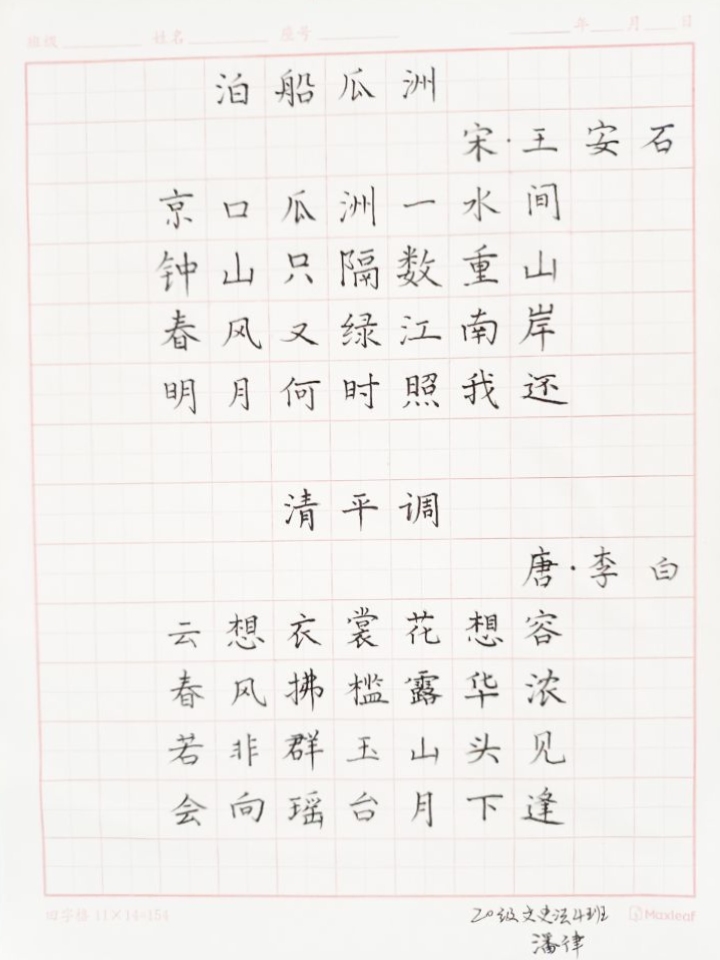 班级 姓名 座号 年 月 日
泊船瓜洲
宋·王安石
京口瓜洲一水间
钟山只隔数重山
春风又绿江南岸
明月何时照我还
清平调
唐·李白
云想衣裳花想容
春风拂槛露华浓
若非群玉山头见
会向瑶台月下逢
田字格 11×14=154
20级文史法4班
Maxleaf
潘律